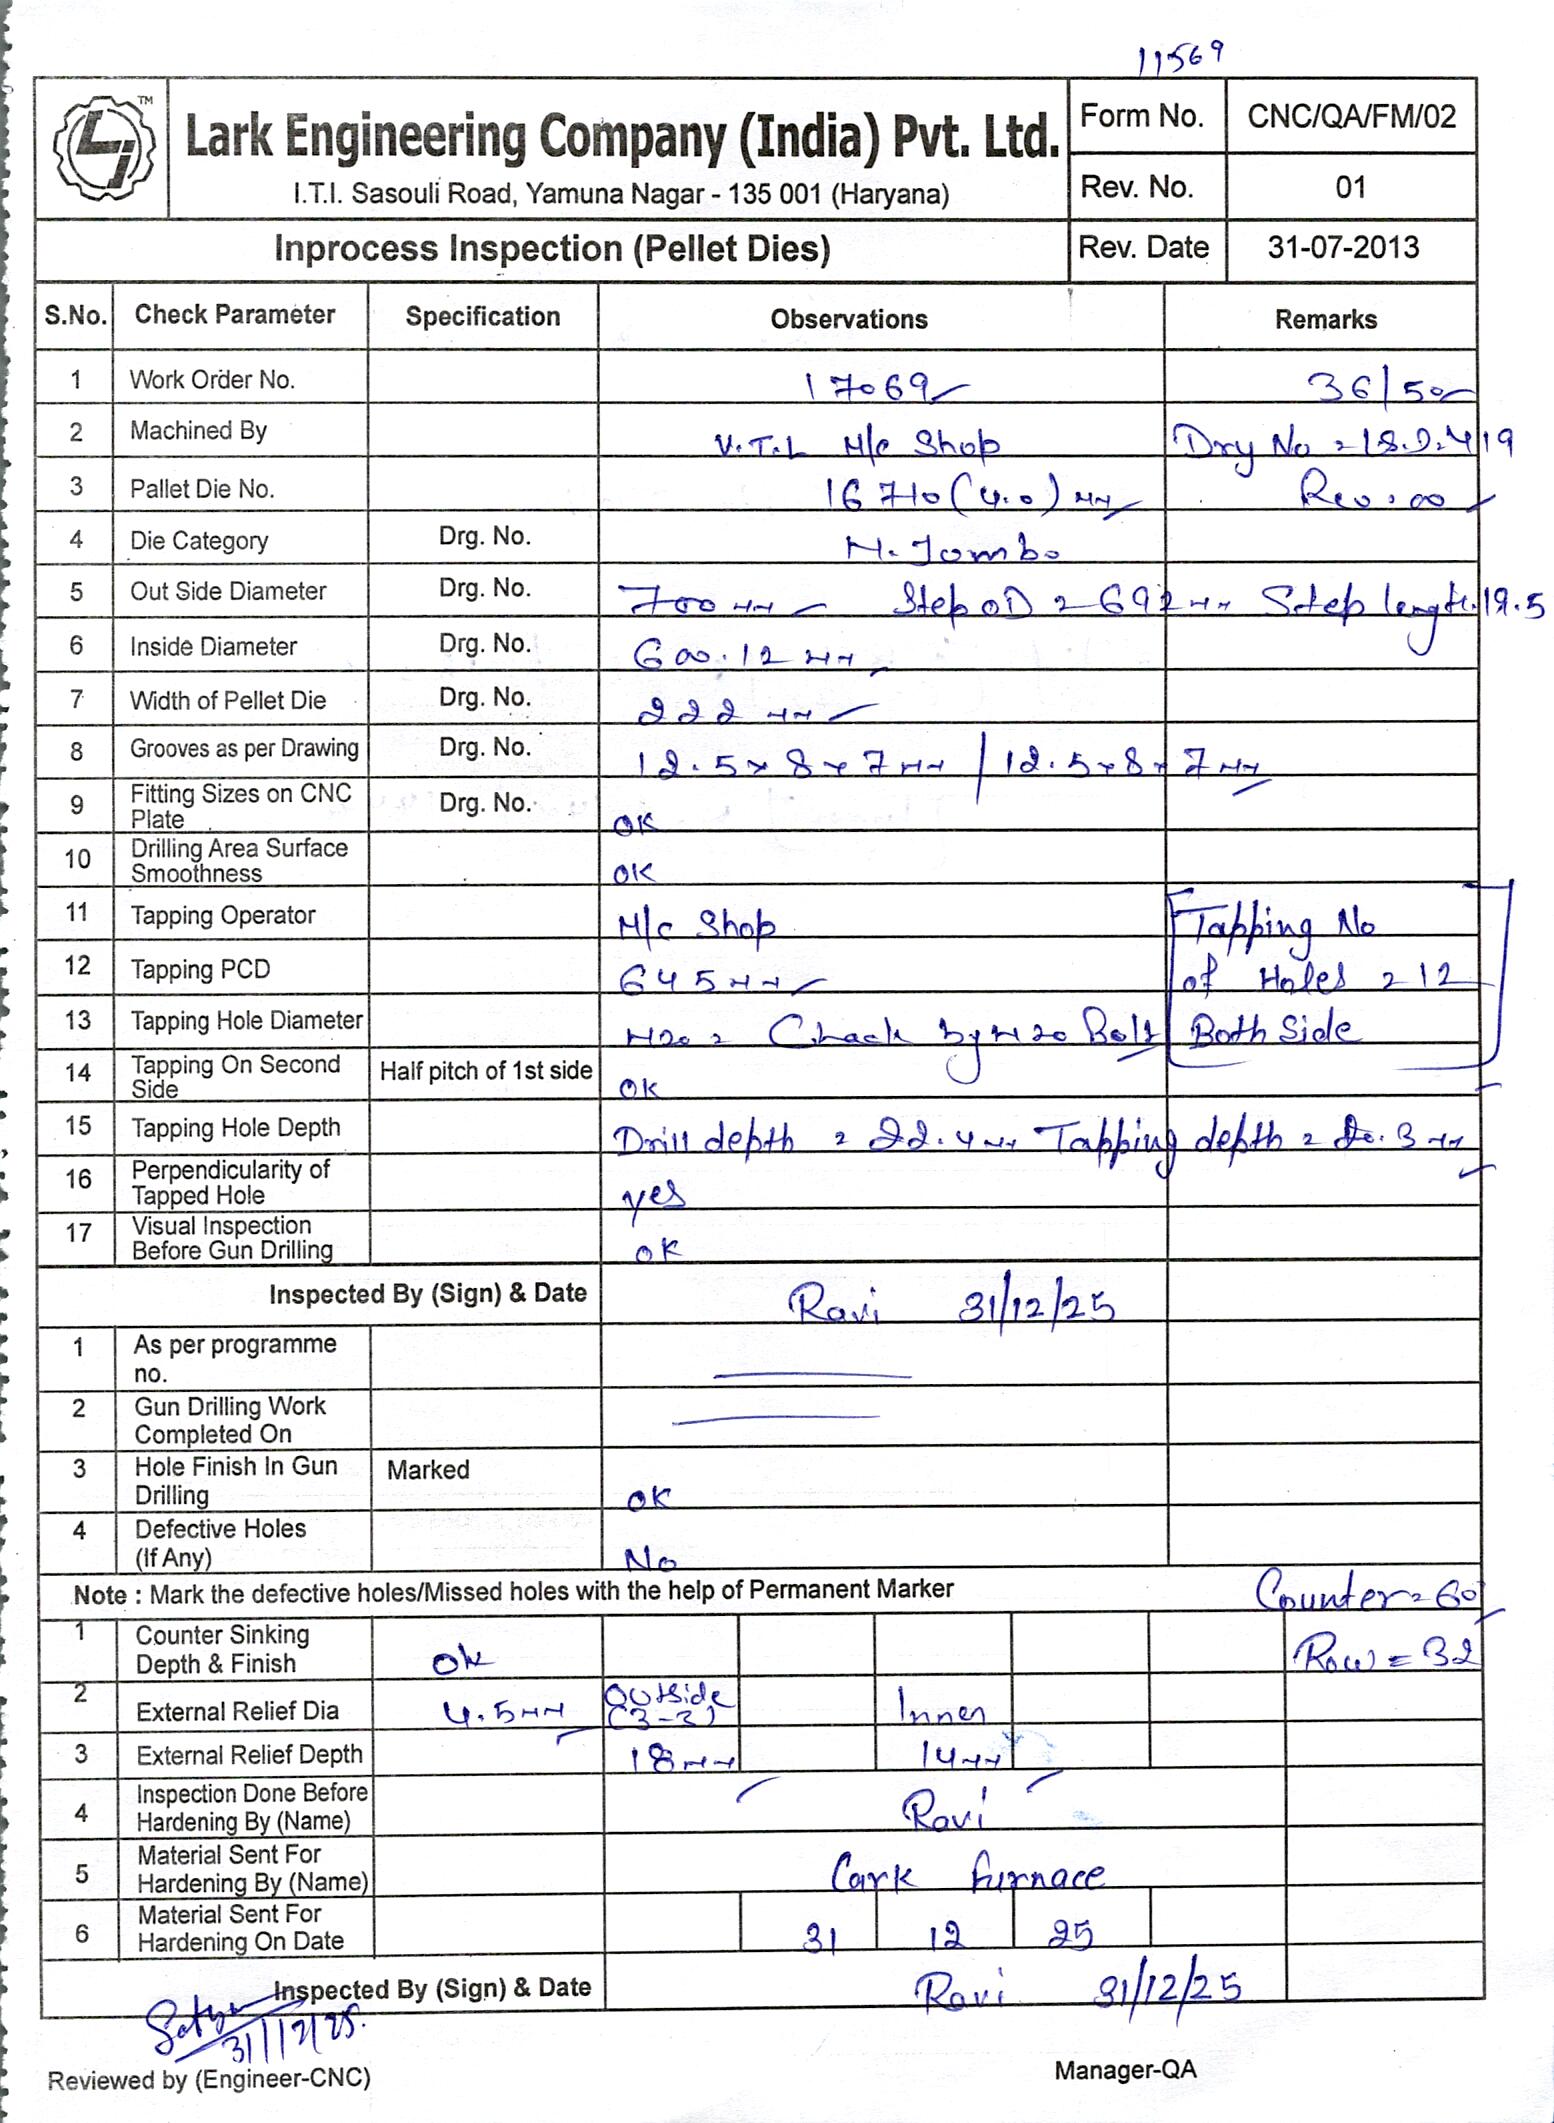 11569
TM
Lark Engineering Company (India) Pvt. Ltd.
I.T.I. Sasouli Road, Yamuna Nagar - 135 001 (Haryana)
Form No. CNC/QA/FM/02
Rev. No. 01
Inprocess Inspection (Pellet Dies) Rev. Date 31-07-2013
S.No. Check Parameter Specification Observations Remarks
1 Work Order No. 17069 36/50
2 Machined By V.T.L M/c Shop Drg No = 18.2.419
3 Pallet Die No. 16710 (4.0) mm Rev. 00
4 Die Category Drg. No. M. Jombo
5 Out Side Diameter Drg. No. 700 mm Step OD = 692 mm Step length. 19.5
6 Inside Diameter Drg. No. 600.12 mm
7 Width of Pellet Die Drg. No. 222 mm
8 Grooves as per Drawing Drg. No. 12.5 x 8 x 7 mm / 12.5 x 8 x 7 mm
9 Fitting Sizes on CNC Plate Drg. No. OK
10 Drilling Area Surface Smoothness OK
11 Tapping Operator M/c Shop Tapping No
12 Tapping PCD 645 mm of Holes = 12
13 Tapping Hole Diameter M20 = Chack by M20 Bolt Both Side
14 Tapping On Second Side Half pitch of 1st side OK
15 Tapping Hole Depth Drill depth = 22.4 mm Tapping depth = 20.3 mm
16 Perpendicularity of Tapped Hole yes
17 Visual Inspection Before Gun Drilling OK
Inspected By (Sign) & Date Ravi 31/12/25
1 As per programme no.
2 Gun Drilling Work Completed On
3 Hole Finish In Gun Drilling Marked OK
4 Defective Holes (If Any) No
Note : Mark the defective holes/Missed holes with the help of Permanent Marker Counter = 60
1 Counter Sinking Depth & Finish ok Row = 32
2 External Relief Dia 4.5 mm Outside (3-3) Inner
3 External Relief Depth 18 mm 14 mm
4 Inspection Done Before Hardening By (Name) Ravi
5 Material Sent For Hardening By (Name) Cark furnace
6 Material Sent For Hardening On Date 31 12 25
Inspected By (Sign) & Date Ravi 31/12/25
31/12/25.
Reviewed by (Engineer-CNC) Manager-QA